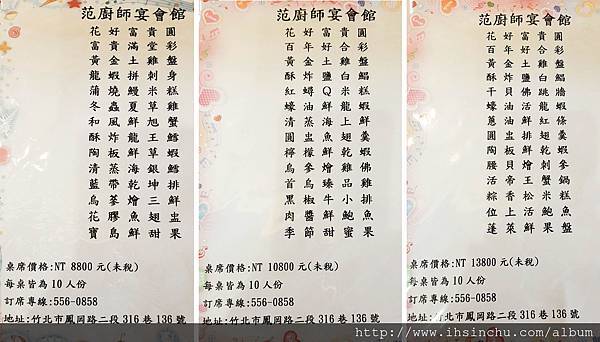 范廚師宴會館
花好富貴圓
富貴滿堂彩
黃金土雞盤
龍蝦拼刺身
蒲燒鰻米糕
冬蟲夏草雞
和風鮮旭蟹
酥炸龍王鱈
陶板鮮草蝦
清蒸海銀鱈
藍帶乾坤排
烏蔘燴三鮮
花膠魚翅盅
寶島鮮甜果
桌席價格:NT 8800 元(未稅)
每桌皆為 10 人份
訂席專線:556-0858
地址:竹北市鳳岡路二段 316 巷 136 號
范廚師宴會館
花好富貴圓
百年好合彩
黃金土雞盤
酥炸鹽白鯧
紅蟳Q米糕
蠔油鮮龍蝦
清蒸海上鮮
圓盅魚翅羹
檸檬乾蝦
烏參燴雞佛
首烏臻品雞
黑椒牛小排
肉醬鮮鮑魚
季節甜蜜果
桌席價格:NT 10800 元(未稅)
每桌皆為 10 人份
訂席專線:556-0858
地址:竹北市鳳岡路二段 316 巷 136 號
范廚師宴會館
花好富貴圓
百年好合彩
黃金土雞盤
酥炸鹽白鯧
干貝佛跳牆
蠔油活龍蝦
蔥油鮮紅條
圓盅排翅羹
陶板鮮乾蝦
腰貝燴刺參
活帝王蟹鍋
粽香松米糕
位上活鮑魚
蓬萊鮮果盤
桌席價格:NT 13800 元(未稅)
每桌皆為 10 人份
訂席專線:556-0858
地址:竹北市鳳岡路二段 316 巷 136 號
http://www.ihsinchu.com/album